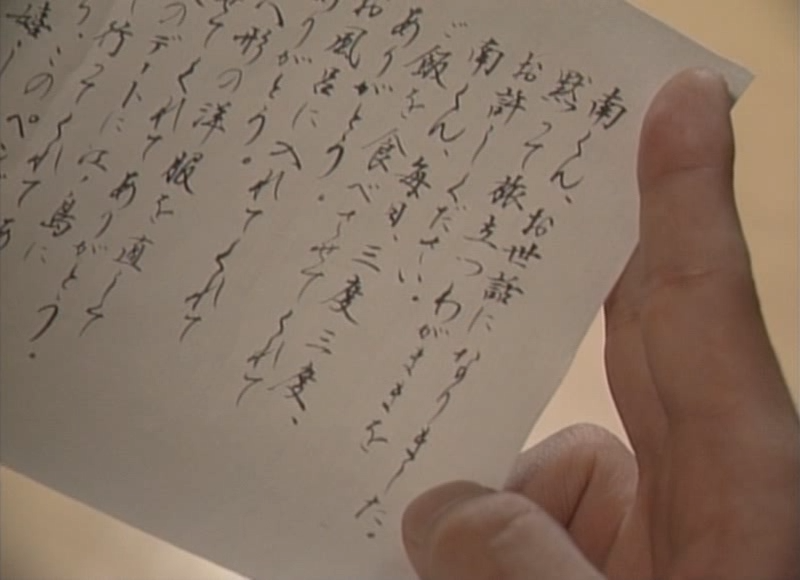 南くん、お世話になりました。
黙って旅立つわがままを
お許しください。
南くん、毎日、三度三度、
ご飯を食べさせてくれて
ありがとう。
お風呂に入れてくれて
ありがとう。
人形の洋服を直して
くれてありがとう。
のデートに江ノ島に
行ってくれて
嬉しい
のペン